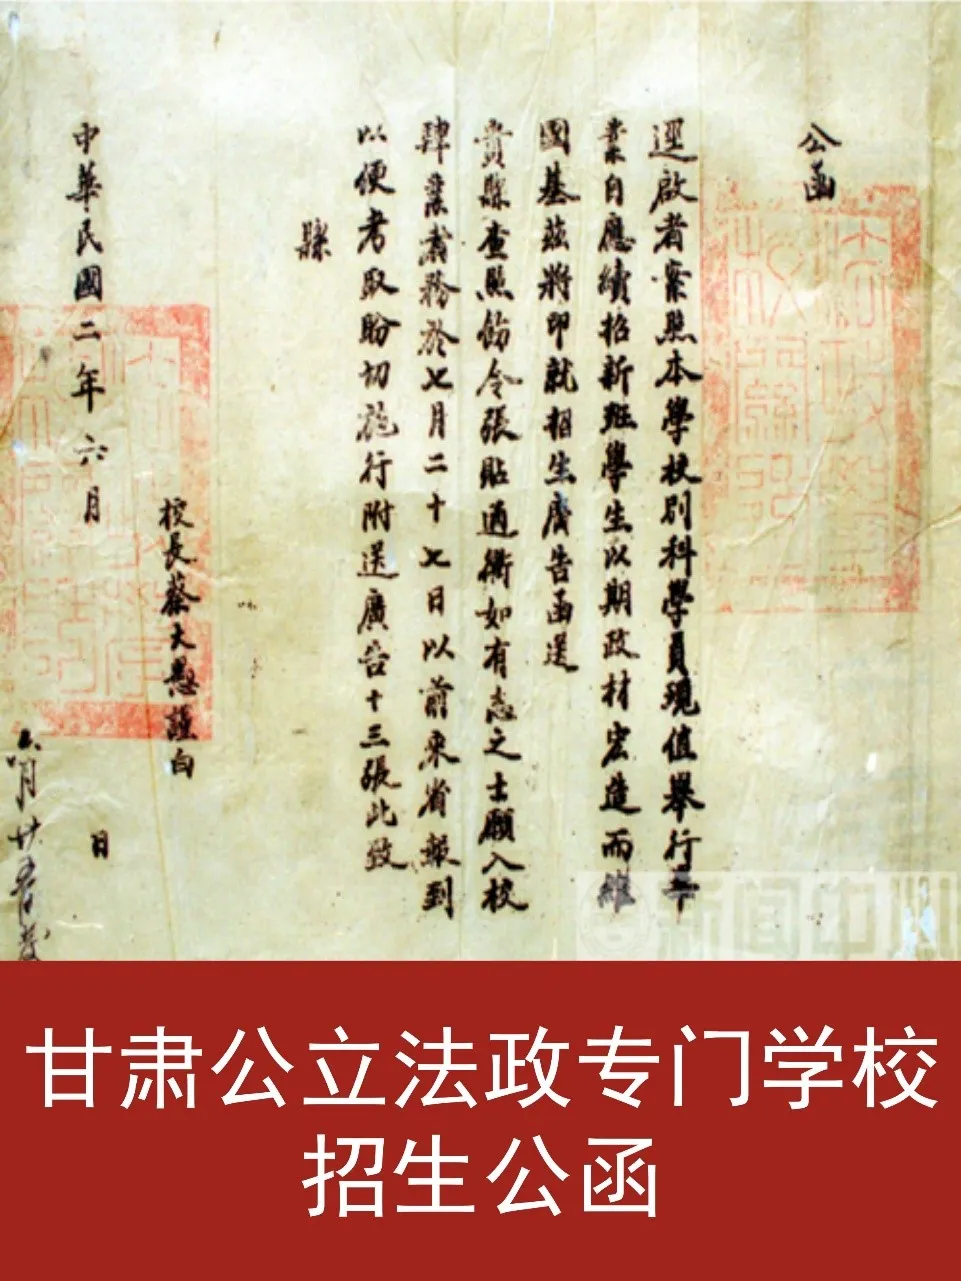 公函
逕啟者案照本學校別科學員現值舉行畢
業自應續招新班學生以期政材宏造而維
國基茲將印就招生廣告函送
貴縣查照飭令張貼通衢如有志之士願入校
肄業者務於七月二十七日以前來省報到
以便考取盼切施行附送廣告十三張此致
縣
校長蔡大愚謹白
中華民國二年六月 日
六月廿五日
甘肃公立法政专门学校
招生公函